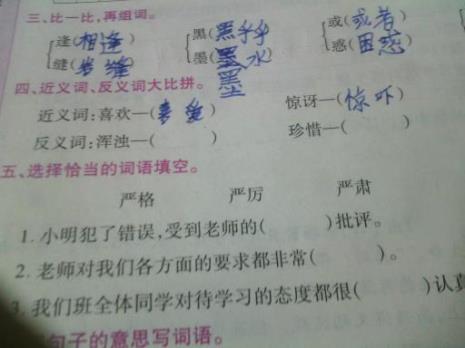 三、比一比,再组词。
逢(相逢) 黑(黑乎乎) 或(或者)
缝( 缝) 墨(墨水) 惑(困惑)
墨
四、近义词、反义词大比拼。
近义词:喜欢—(喜爱) 惊讶—(惊吓)
反义词:浑浊—( ) 珍惜—( )
五、选择恰当的词语填空。
严格 严厉 严肃
1. 小明犯了错误,受到老师的( )批评。
2. 老师对我们各方面的要求都非常( )。
3. 我们班全体同学对待学习的态度都很( )认真
句子的意思写词语。